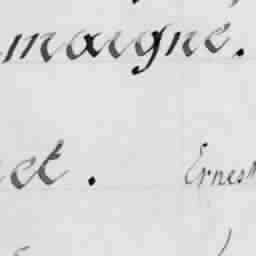 maigne.
et. Ernest